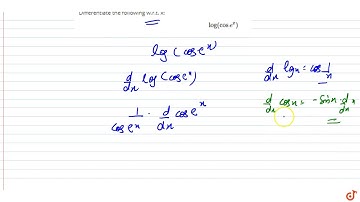 Differentiate the following w.r.t. x:
log(cos eˣ)
log (cos eˣ)
d/dx log (cos eˣ)
1/cos eˣ · d/dx cos eˣ
d/dx log x = cos 1/x
d/dx cos x = - sin x · d/dx x